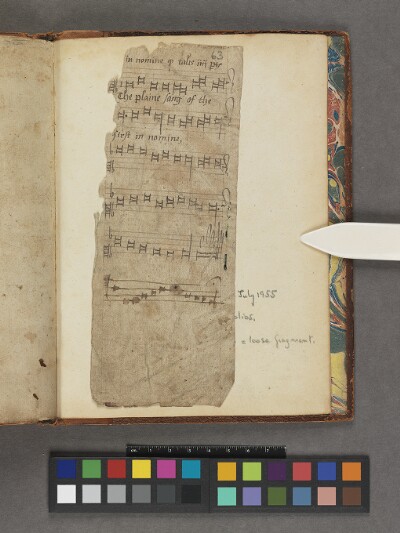 63
In nomine
The plaine song of the
first in nomine,
July 1955
a loose fragment.